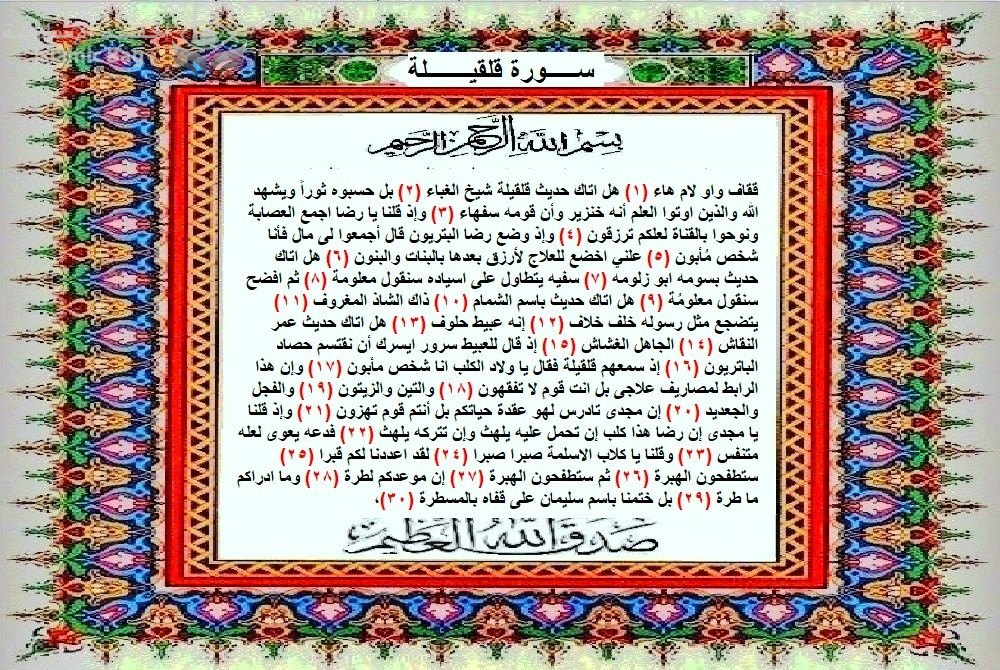 سـورة قلقيـلة
بسم الله الرحمن الرحيم
ققاف واو لام هاء (١) هل اتاك حديث قلقيلة شيخ الغباء (٢) بل حسبوه ثوراً ويشهد
الله والذين اوتوا العلم أنه خنزير وأن قومه سفهاء (٣) وإذ قلنا يا رضا اجمع العصابة
ونوحوا بالقناة لعلكم ترزقون (٤) وإذ وضع رضا البتريون قال أجمعوا لى مال فأنا
شخص مُأبون (٥) علني اخضع للعلاج لأرزق بعدها بالبنات والبنون (٦) هل اتاك
حديث بسومه ابو زلومه (٧) سفيه يتطاول على اسياده سنقول معلومة (٨) ثم افضح
سنقول معلومُة (٩) هل اتاك حديث باسم الشمام (١٠) ذاك الشاذ المغروف (١١)
يتضجع مثل رسوله خلف خلاف (١٢) إنه عبيط حلوف (١٣) هل اتاك حديث عمر
النقاش (١٤) الجاهل الغشاش (١٥) إذ قال للعبيط سرور ايسرك أن نقتسم حصاد
الباتريون (١٦) إذ سمعهم قلقيلة فقال يا ولاد الكلب انا شخص مأبون (١٧) وإن هذا
الرابط لمصاريف علاجى بل انت قوم لا تفقهون (١٨) والتين والزيتون (١٩) والفجل
والجعديد (٢٠) إن مجدى تادرس لهو عقدة حياتكم بل أنتم قوم تهزون (٢١) وإذ قلنا
يا مجدى إن رضا هذا كلب إن تحمل عليه يلهث وإن تتركه يلهث (٢٢) فدعه يعوى لعله
متنفس (٢٣) وقلنا يا كلاب الاسلمة صبرا صبرا (٢٤) لقد اعددنا لكم قبرا (٢٥)
ستطفحون الهبرة (٢٦) ثم ستطفحون الهبرة (٢٧) إن موعدكم لطرة (٢٨) وما ادراكم
ما طرة (٢٩) بل ختمنا باسم سليمان على قفاه بالمسطرة (٣٠)،
صدق الله العظيم